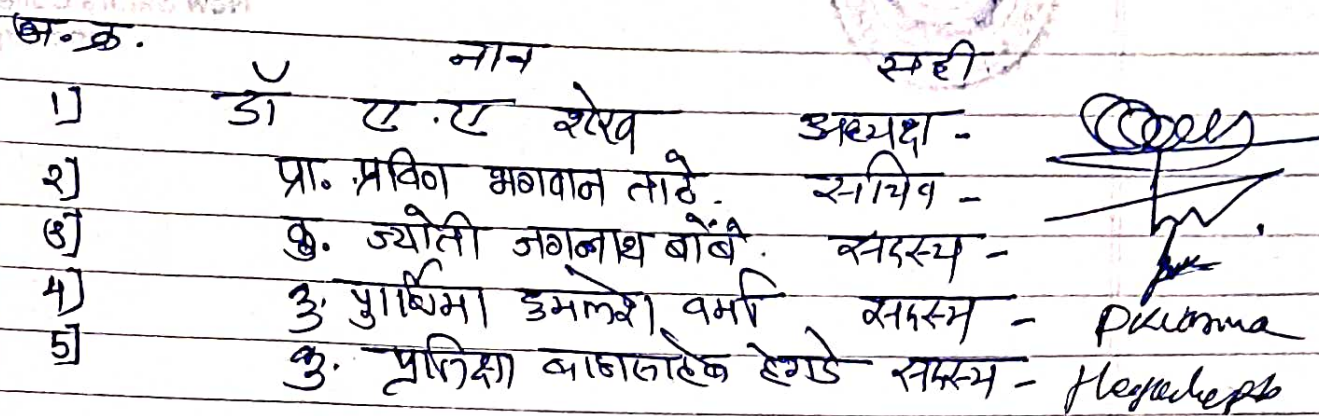 अ.क्र. नाव सही.
1] डॉ ए.ए शेख अध्यक्ष -
२] प्रा. प्रविण भगवान ताटे. सचिव -
३] कु. ज्योती जगन्नाथ बोंबे. सदस्य -
4] कु. पुर्णिमा कमलेश वर्मा सदस्य - PKVarma
5] कु. प्रतिक्षा बाळासाहेब हेगडे सदस्य - Hegadepb